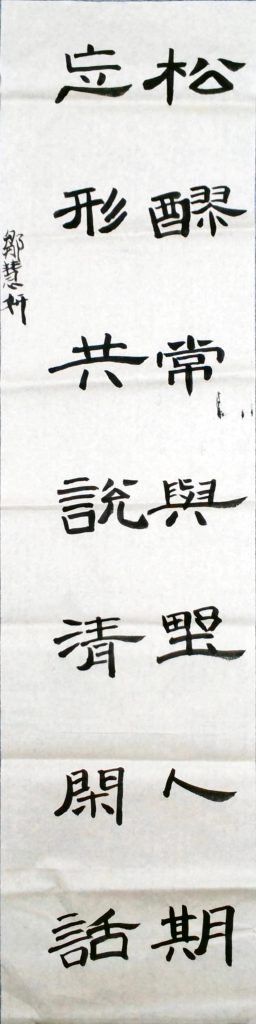 松醪常與野人期
忘形共說清閑話
鄭慧妍